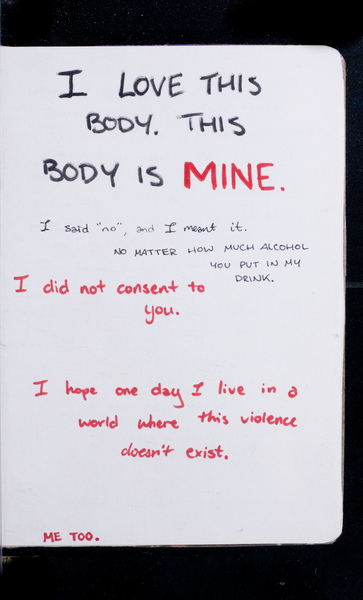 I LOVE THIS
BODY. THIS
BODY IS MINE.
I said "no", and I meant it.
NO MATTER HOW MUCH ALCOHOL
YOU PUT IN MY
DRINK.
I did not consent to
you.
I hope one day I live in a
world where this violence
doesn't exist.
ME TOO.